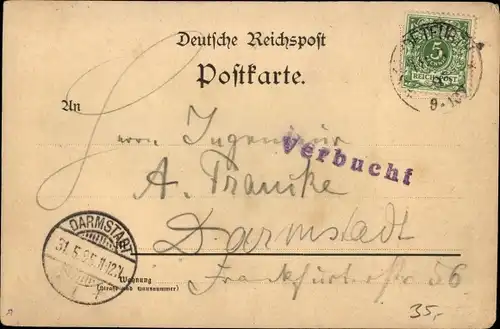 Deutsche Reichspost
5
REICHSPOST
9-10
Postkarte.
An
Herrn Ingenieur
Verbucht
A. Francke
Darmstadt
DARMSTADT
31.5.95.11-12V.
Frankfurterstr 56
Wohnung
(Straße und Hausnummer)
35,-